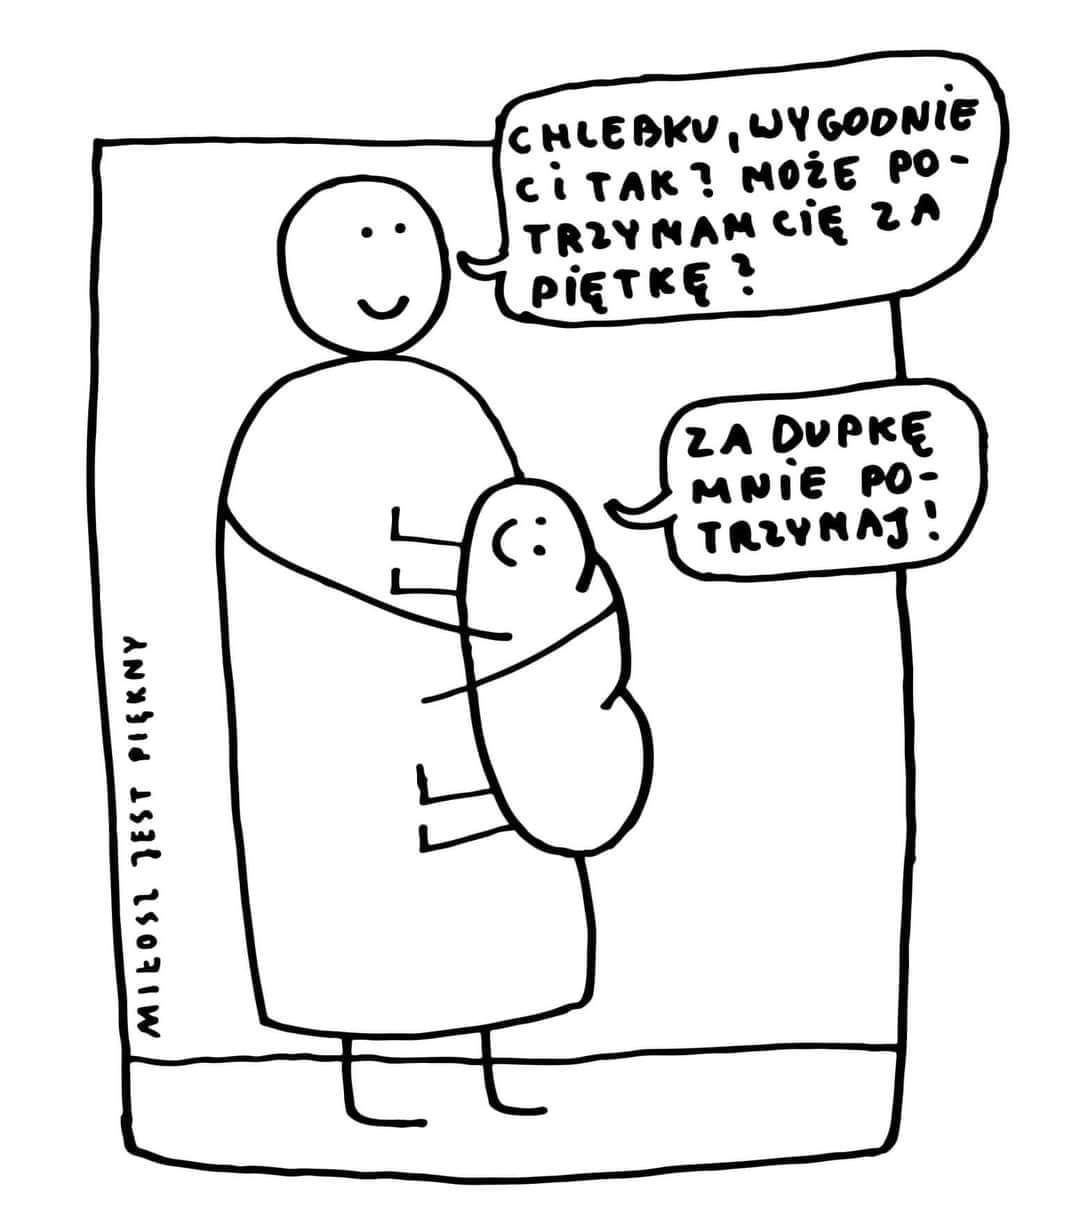 CHLEBKU, WYGODNIE
CI TAK? MOŻE PO-
TRZYMAM CIĘ ZA
PIĘTKĘ?
ZA DUPKĘ
MNIE PO-
TRZYMAJ!
MIŁOSZ JEST PIĘKNY